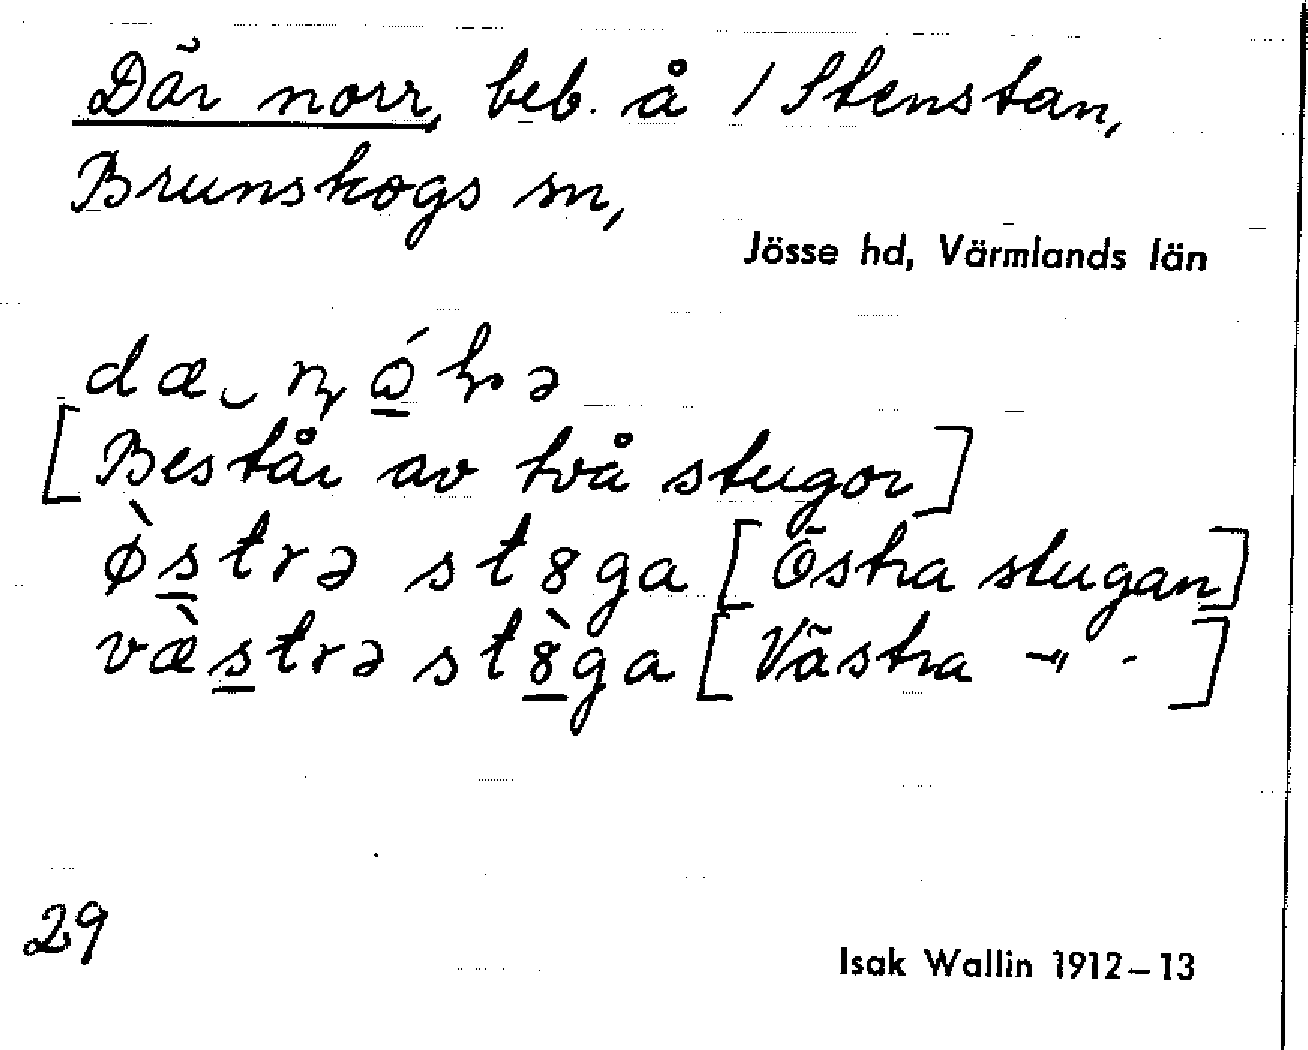 Där norr, beb. å 1 Stenstan,
Brunskogs sn,
Jösse hd, Värmlands län
[Består av två stugor]
ø̀strə st8ga [Östra stugan]
væ̀strə st8̀ga [Västra –"–]
29
Isak Wallin 1912–13